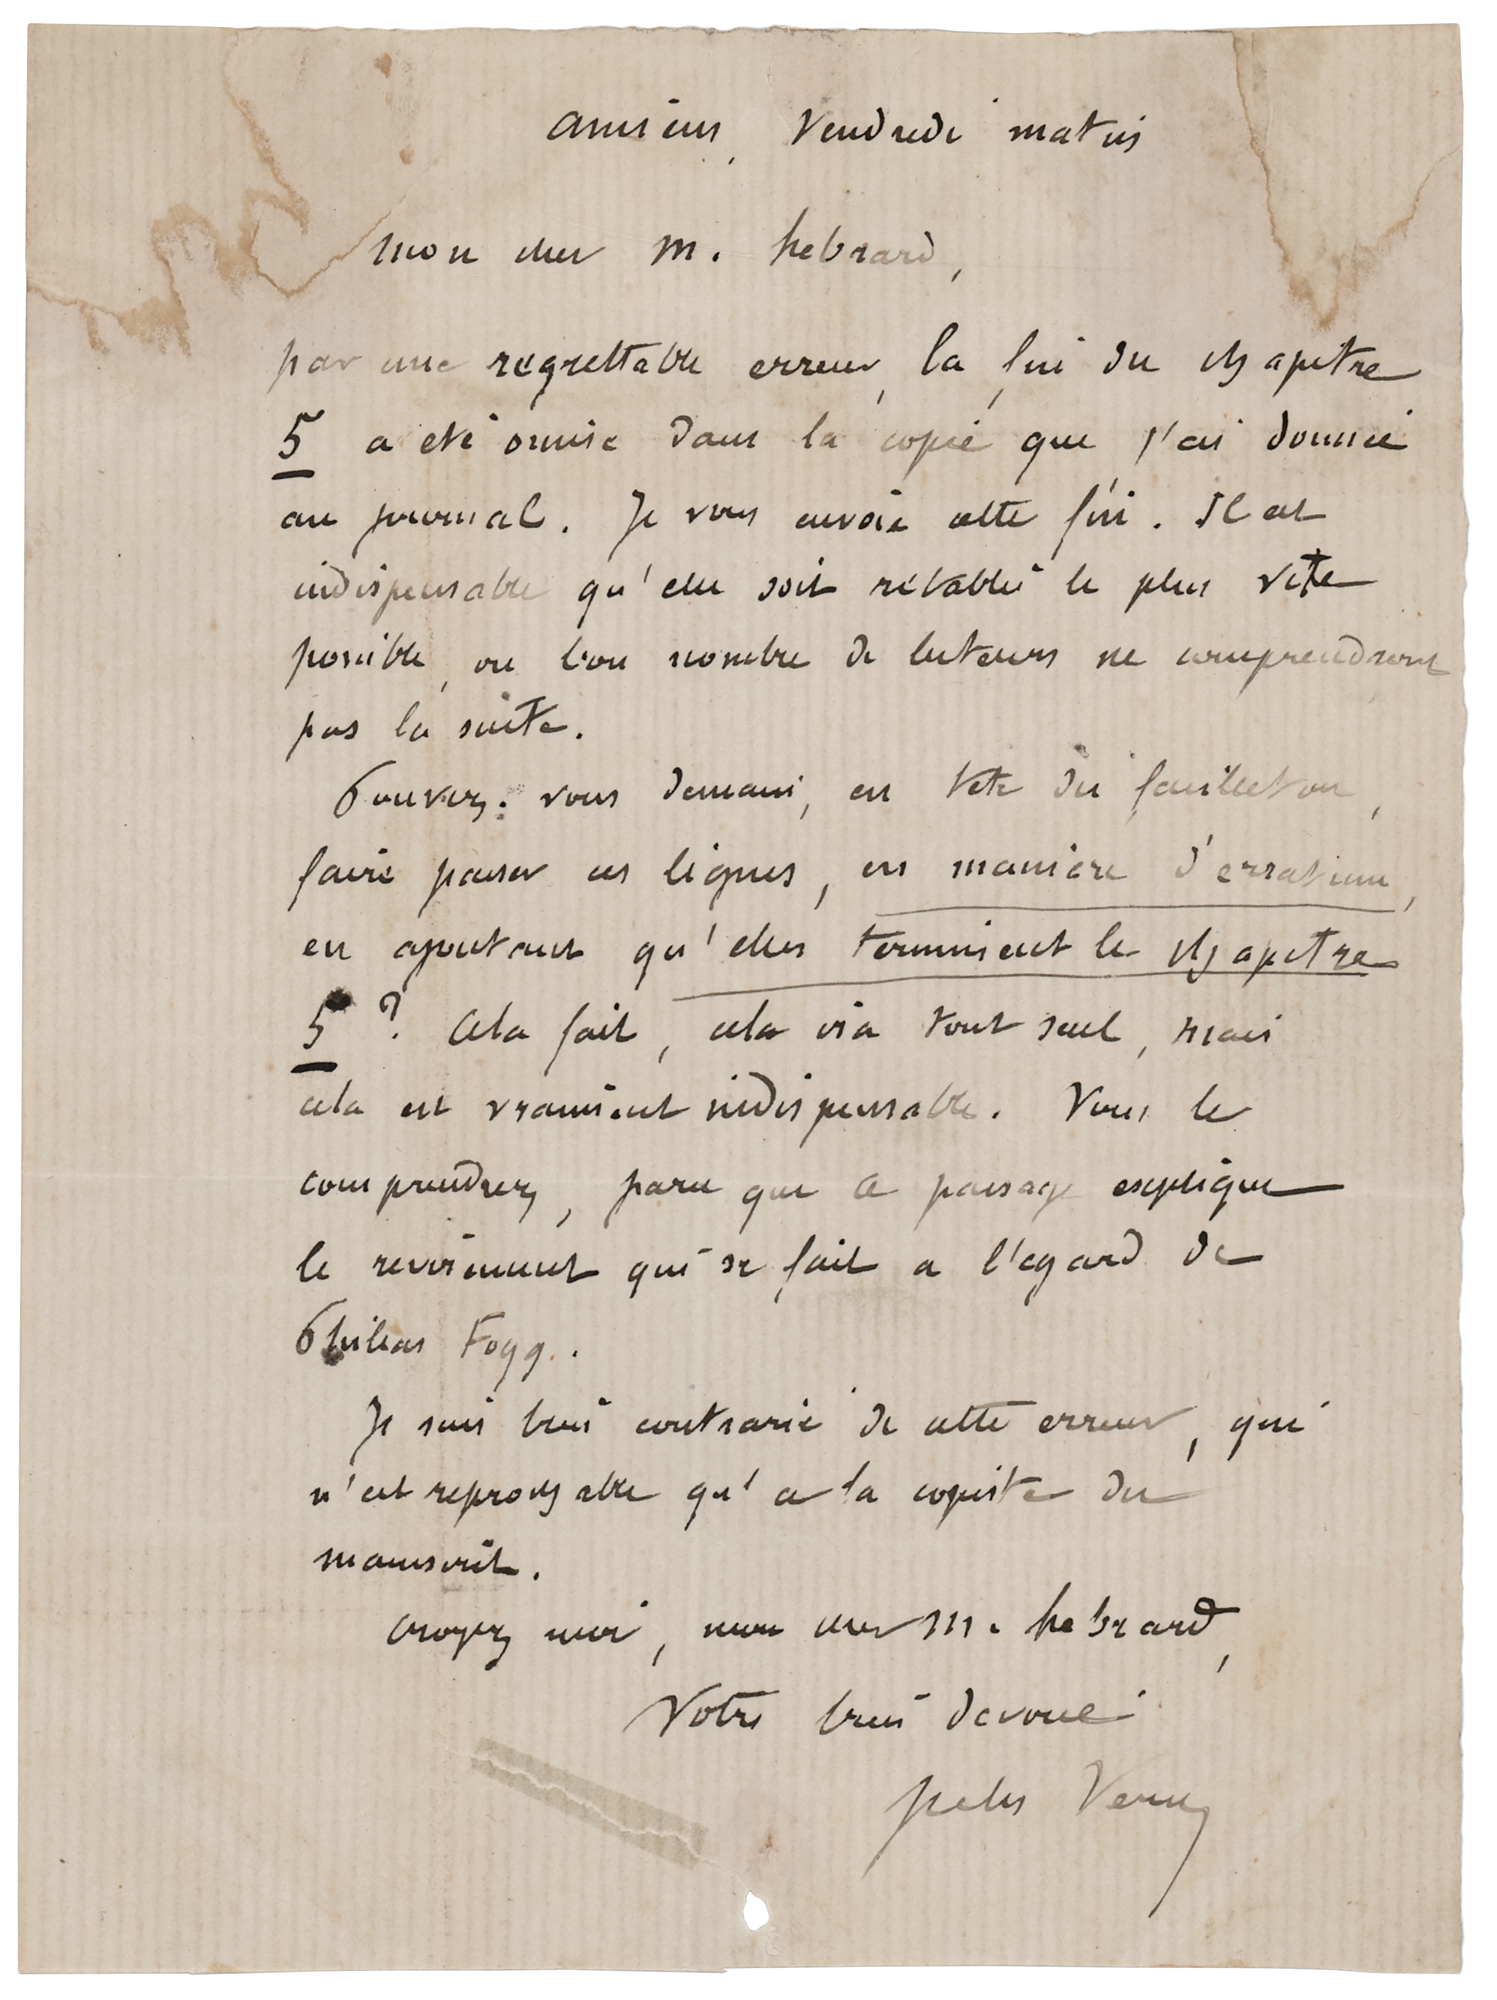 Amiens, Vendredi matin
Mon cher M. hebrard,
par une regrettable erreur, la fin du chapitre
5 a été omise dans la copie que j'ai donnée
au journal. Je vous envoie cette fin. Il est
indispensable qu'elle soit rétablie le plus vite
possible, ou bon nombre de lecteurs ne comprendront
pas la suite.
Pouvez-vous demain, en tete du feuilleton,
faire passer ces lignes, en manière d'erratum,
en ajoutant qu'elles terminent le chapitre
5 ? Cela fait, cela ira tout seul, mais
cela est vraiment indispensable. Vous le
comprendrez, parce que ce passage explique
le revirement qui se fait a l'égard de
Philéas Fogg.
Je suis bien contrarié de cette erreur, qui
n'est reprochable qu'a la copiste du
manuscrit.
Croyez moi, mon cher M. hebrard,
Votre bien dévoué
Jules Verne